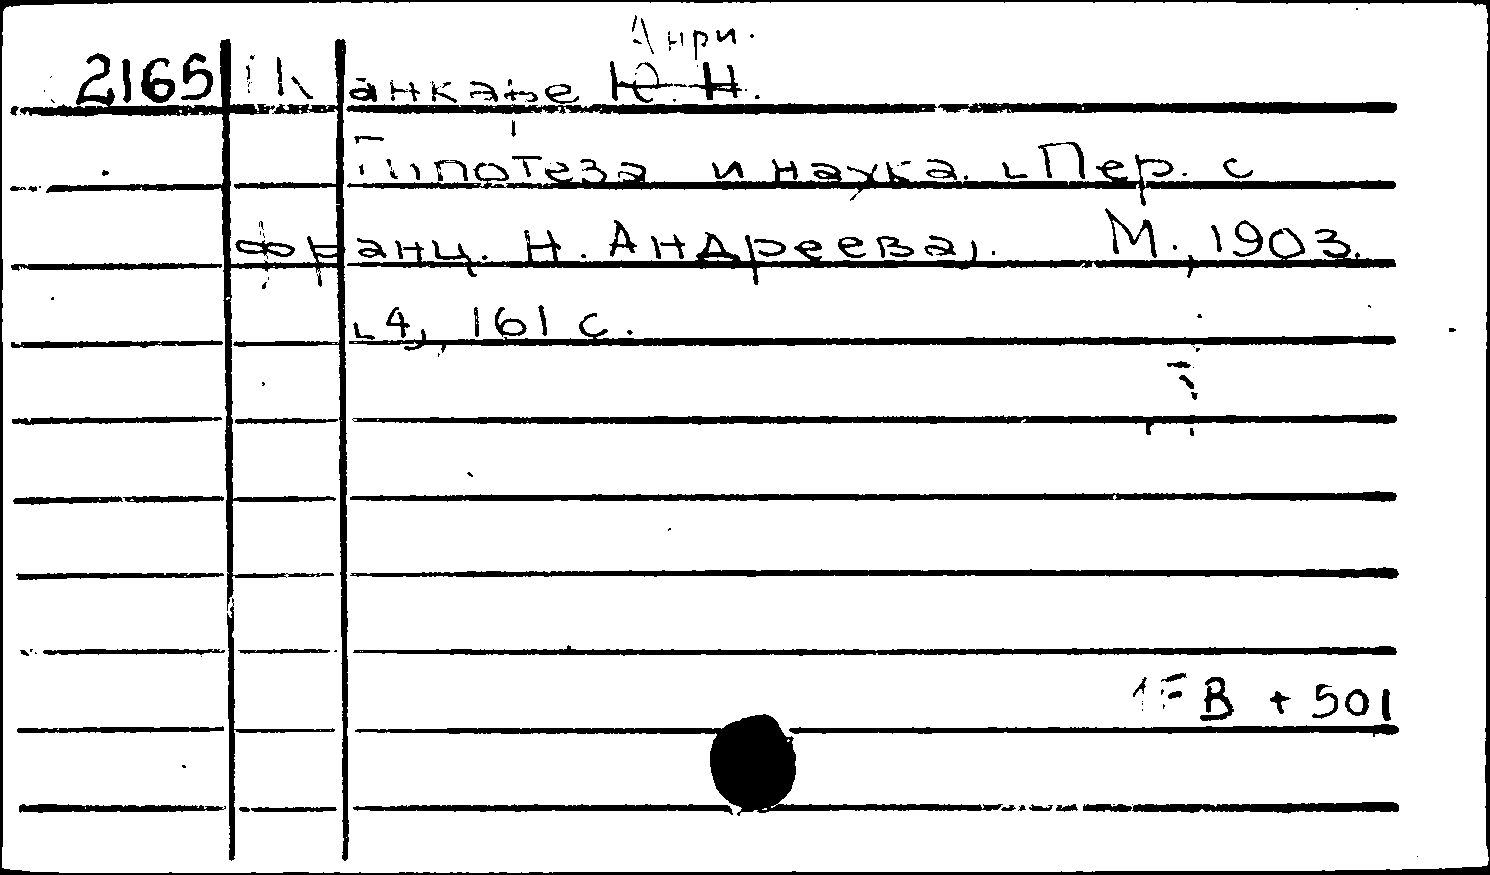 Анри.
2165 Панкаре Ю. Н.
Гипотеза и наука. [Пер. с
франц. Н. Андреева]. М., 1903.
[4], 161 с.
1F B + 501